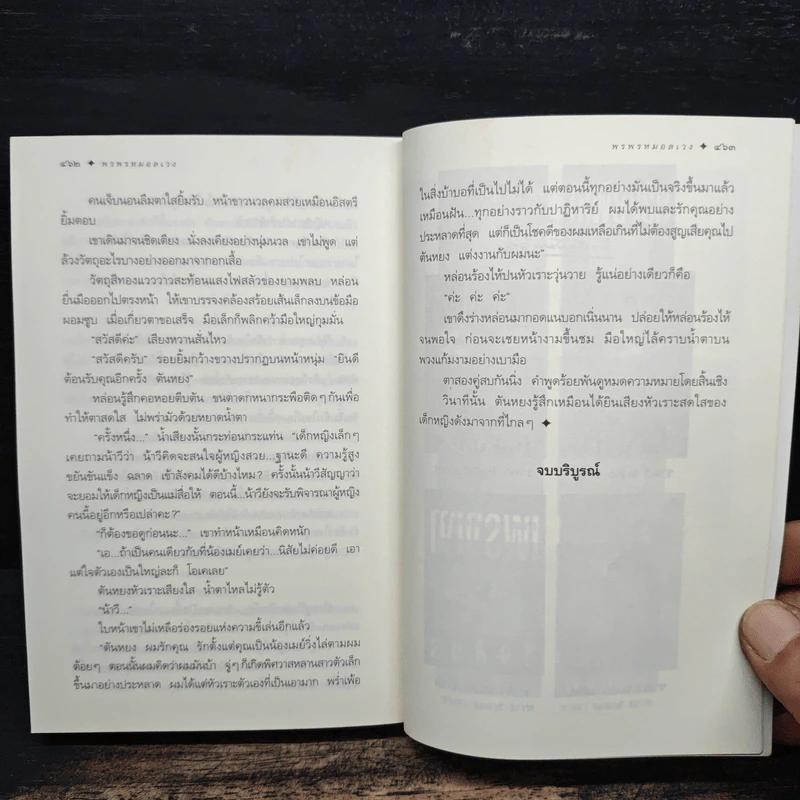 ๔๖๒ ✦ พรพรหมอลเวง
คนเจ็บนอนลืมตาใสยิ้มรับ หน้าขาวนวลคมสวยเหมือนอิสตรี
ยิ้มตอบ
เขาเดินมาจนชิดเตียง นั่งลงเคียงอย่างนุ่มนวล เขาไม่พูด แต่
ล้วงวัตถุอะไรบางอย่างออกมาจากอกเสื้อ
วัตถุสีทองแวววาวสะท้อนแสงไฟสลัวของยามพลบ หล่อน
ยื่นมือออกไปตรงหน้า ให้เขาบรรจงคล้องสร้อยเส้นเล็กลงบนข้อมือ
ผอมซูบ เมื่อเกี่ยวตาขอเสร็จ มือเล็กก็พลิกคว้ามือใหญ่กุมมั่น
“สวัสดีค่ะ” เสียงหวานสั่นไหว
“สวัสดีครับ” รอยยิ้มกว้างขวางปรากฏบนหน้าหนุ่ม “ยินดี
ต้อนรับคุณอีกครั้ง ตันหยง”
หล่อนรู้สึกคอหอยตีบตัน ขนตาดกหนากระพือติดๆ กันเพื่อ
ทำให้ตาสดใส ไม่พร่ามัวด้วยหยาดน้ำตา
“ครั้งหนึ่ง...” น้ำเสียงนั้นกระท่อนกระแท่น “เด็กหญิงเล็กๆ
เคยถามน้าวีว่า น้าวีคิดจะสนใจผู้หญิงสวย...ฐานะดี ความรู้สูง
ขยันขันแข็ง ฉลาด เข้าสังคมได้ดีบ้างไหม? ครั้งนั้นน้าวีสัญญาว่า
จะยอมให้เด็กหญิงเป็นแม่สื่อให้ ตอนนี้...น้าวียังจะรับพิจารณาผู้หญิง
คนนี้อยู่อีกหรือเปล่าคะ?”
“ก็ต้องขอดูก่อนนะ...” เขาทำหน้าเหมือนคิดหนัก
“เอ...ถ้าเป็นคนเดียวกับที่น้องเมย์เคยว่า...นิสัยไม่ค่อยดี เอา
แต่ใจตัวเองเป็นใหญ่ละก็ โอเคเลย”
ตันหยงหัวเราะเสียงใส น้ำตาไหลไม่รู้ตัว
“น้าวี...”
ใบหน้าเขาไม่เหลือร่องรอยแห่งความขี้เล่นอีกแล้ว
“ตันหยง ผมรักคุณ รักตั้งแต่คุณเป็นน้องเมย์วิ่งไล่ตามผม
ต้อยๆ ตอนนั้นผมคิดว่าผมมันบ้า จู่ๆ ก็เกิดพิศวาสหลานสาวตัวเล็ก
ขึ้นมาอย่างประหลาด ผมได้แต่หัวเราะตัวเองที่เป็นเอามาก พร่ำเพ้อ
พรพรหมอลเวง ✦ ๔๖๓
ในสิ่งบ้าบอที่เป็นไปไม่ได้ แต่ตอนนี้ทุกอย่างมันเป็นจริงขึ้นมาแล้ว
เหมือนฝัน...ทุกอย่างราวกับปาฏิหาริย์ ผมได้พบและรักคุณอย่าง
ประหลาดที่สุด แต่ก็เป็นโชคดีของผมเหลือเกินที่ไม่ต้องสูญเสียคุณไป
ตันหยง แต่งงานกับผมนะ”
หล่อนร้องไห้ปนหัวเราะวุ่นวาย รู้แน่อย่างเดียวก็คือ
“ค่ะ ค่ะ ค่ะ”
เขาดึงร่างหล่อนมากอดแนบอกเนิ่นนาน ปล่อยให้หล่อนร้องไห้
จนพอใจ ก่อนจะเชยหน้างามขึ้นชม มือใหญ่ไล้คราบน้ำตาบน
พวงแก้มงามอย่างเบามือ
ตาสองคู่สบกันนิ่ง คำพูดร้อยพันดูหมดความหมายโดยสิ้นเชิง
วินาทีนั้น ตันหยงรู้สึกเหมือนได้ยินเสียงหัวเราะสดใสของ
เด็กหญิงดังมาจากที่ไกลๆ ✦
จบบริบูรณ์